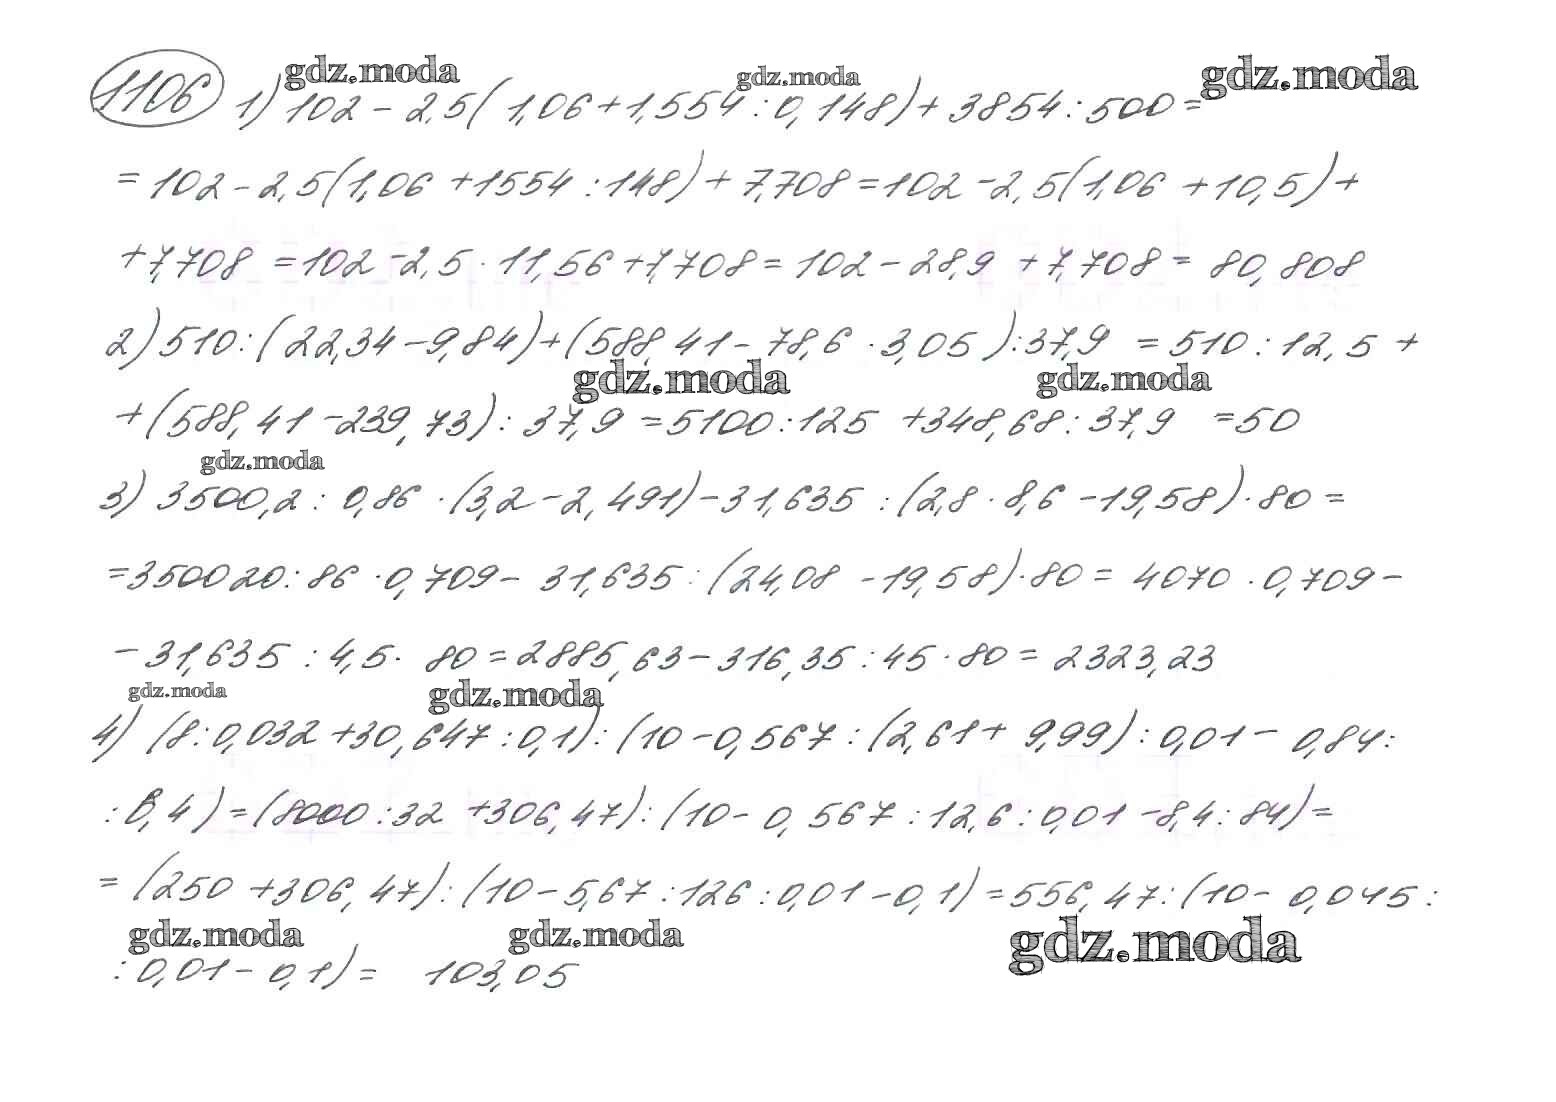 1106 1) 102 - 2,5(1,06 + 1,554 : 0,148) + 3854 : 500 =
gdz.moda gdz.moda gdz.moda
= 102 - 2,5(1,06 + 1554 : 148) + 7,708 = 102 - 2,5(1,06 + 10,5) +
+ 7,708 = 102 - 2,5 · 11,56 + 7,708 = 102 - 28,9 + 7,708 = 80,808
2) 510 : (22,34 - 9,84) + (588,41 - 78,6 · 3,05) : 37,9 = 510 : 12,5 +
gdz.moda gdz.moda
+ (588,41 - 239,73) : 37,9 = 5100 : 125 + 348,68 : 37,9 = 50
gdz.moda
3) 3500,2 : 0,86 · (3,2 - 2,491) - 31,635 : (2,8 · 8,6 - 19,58) · 80 =
= 350020 : 86 · 0,709 - 31,635 : (24,08 - 19,58) · 80 = 4070 · 0,709 -
- 31,635 : 4,5 · 80 = 2885,63 - 316,35 : 45 · 80 = 2323,23
gdz.moda gdz.moda
4) (8 : 0,032 + 30,647 : 0,1) : (10 - 0,567 : (2,61 + 9,99) : 0,01 - 0,84 :
: 8,4) = (8000 : 32 + 306,47) : (10 - 0,567 : 12,6 : 0,01 - 8,4 : 84) =
= (250 + 306,47) : (10 - 5,67 : 126 : 0,01 - 0,1) = 556,47 : (10 - 0,045 :
gdz.moda gdz.moda gdz.moda
: 0,01 - 0,1) = 103,05